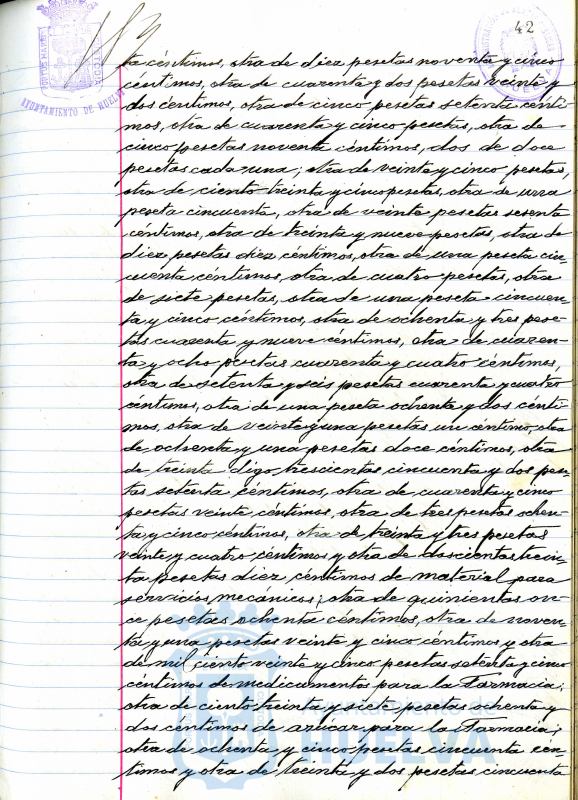 42
AYUNTAMIENTO DE HUELVA
ta céntimos, otra de diez pesetas noventa y cinco
céntimos, otra de cuarenta y dos pesetas veinte y
dos centimos, otra de cinco pesetas setenta cénti
mos, otra de cuarenta y cinco pesetas, otra de
cinco pesetas noventa céntimos, dos de doce
pesetas cada una; otra de veinte y cinco pesetas,
otra de ciento treinta y cinco pesetas, otra de una
peseta cincuenta, otra de veinte pesetas sesenta
céntimos, otra de treinta y nueve pesetas, otra de
diez pesetas diez céntimos, otra de una peseta cin
cuenta céntimos, otra de cuatro pesetas, otra
de siete pesetas, otra de una peseta cincuen
ta y cinco céntimos, otra de ochenta y tres pese
tas cuarenta y nueve céntimos, otra de cuaren
ta y ocho pesetas cuarenta y cuatro céntimos,
otra de setenta y seis pesetas cuarenta y cuatro
céntimos, otra de una peseta ochenta y dos cénti
mos, otra de veinte y una pesetas un centimo, otra
de ochenta y una pesetas doce céntimos, otra
de treinta digo trescientas cincuenta y dos pese
tas setenta céntimos, otra de cuarenta y cinco
pesetas veinte céntimos, otra de tres pesetas ochen
ta y cinco céntimos, otra de treinta y tres pesetas
veinte y cuatro céntimos y otra de doscientas trein
ta pesetas diez céntimos de material para
servicios mecánicos; otra de quinientas on
ce pesetas ochenta céntimos, otra de noven
ta y una pesetas veinte y cinco céntimos y otra
de mil ciento veinte y cinco pesetas setenta y cinco
céntimos de medicamentos para la Farmacia;
otra de ciento treinta y siete pesetas ochenta y
dos céntimos de azúcar para la Farmacia;
otra de ochenta y cinco pesetas cincuenta cén
timos y otra de treinta y dos pesetas cincuenta
HUELVA